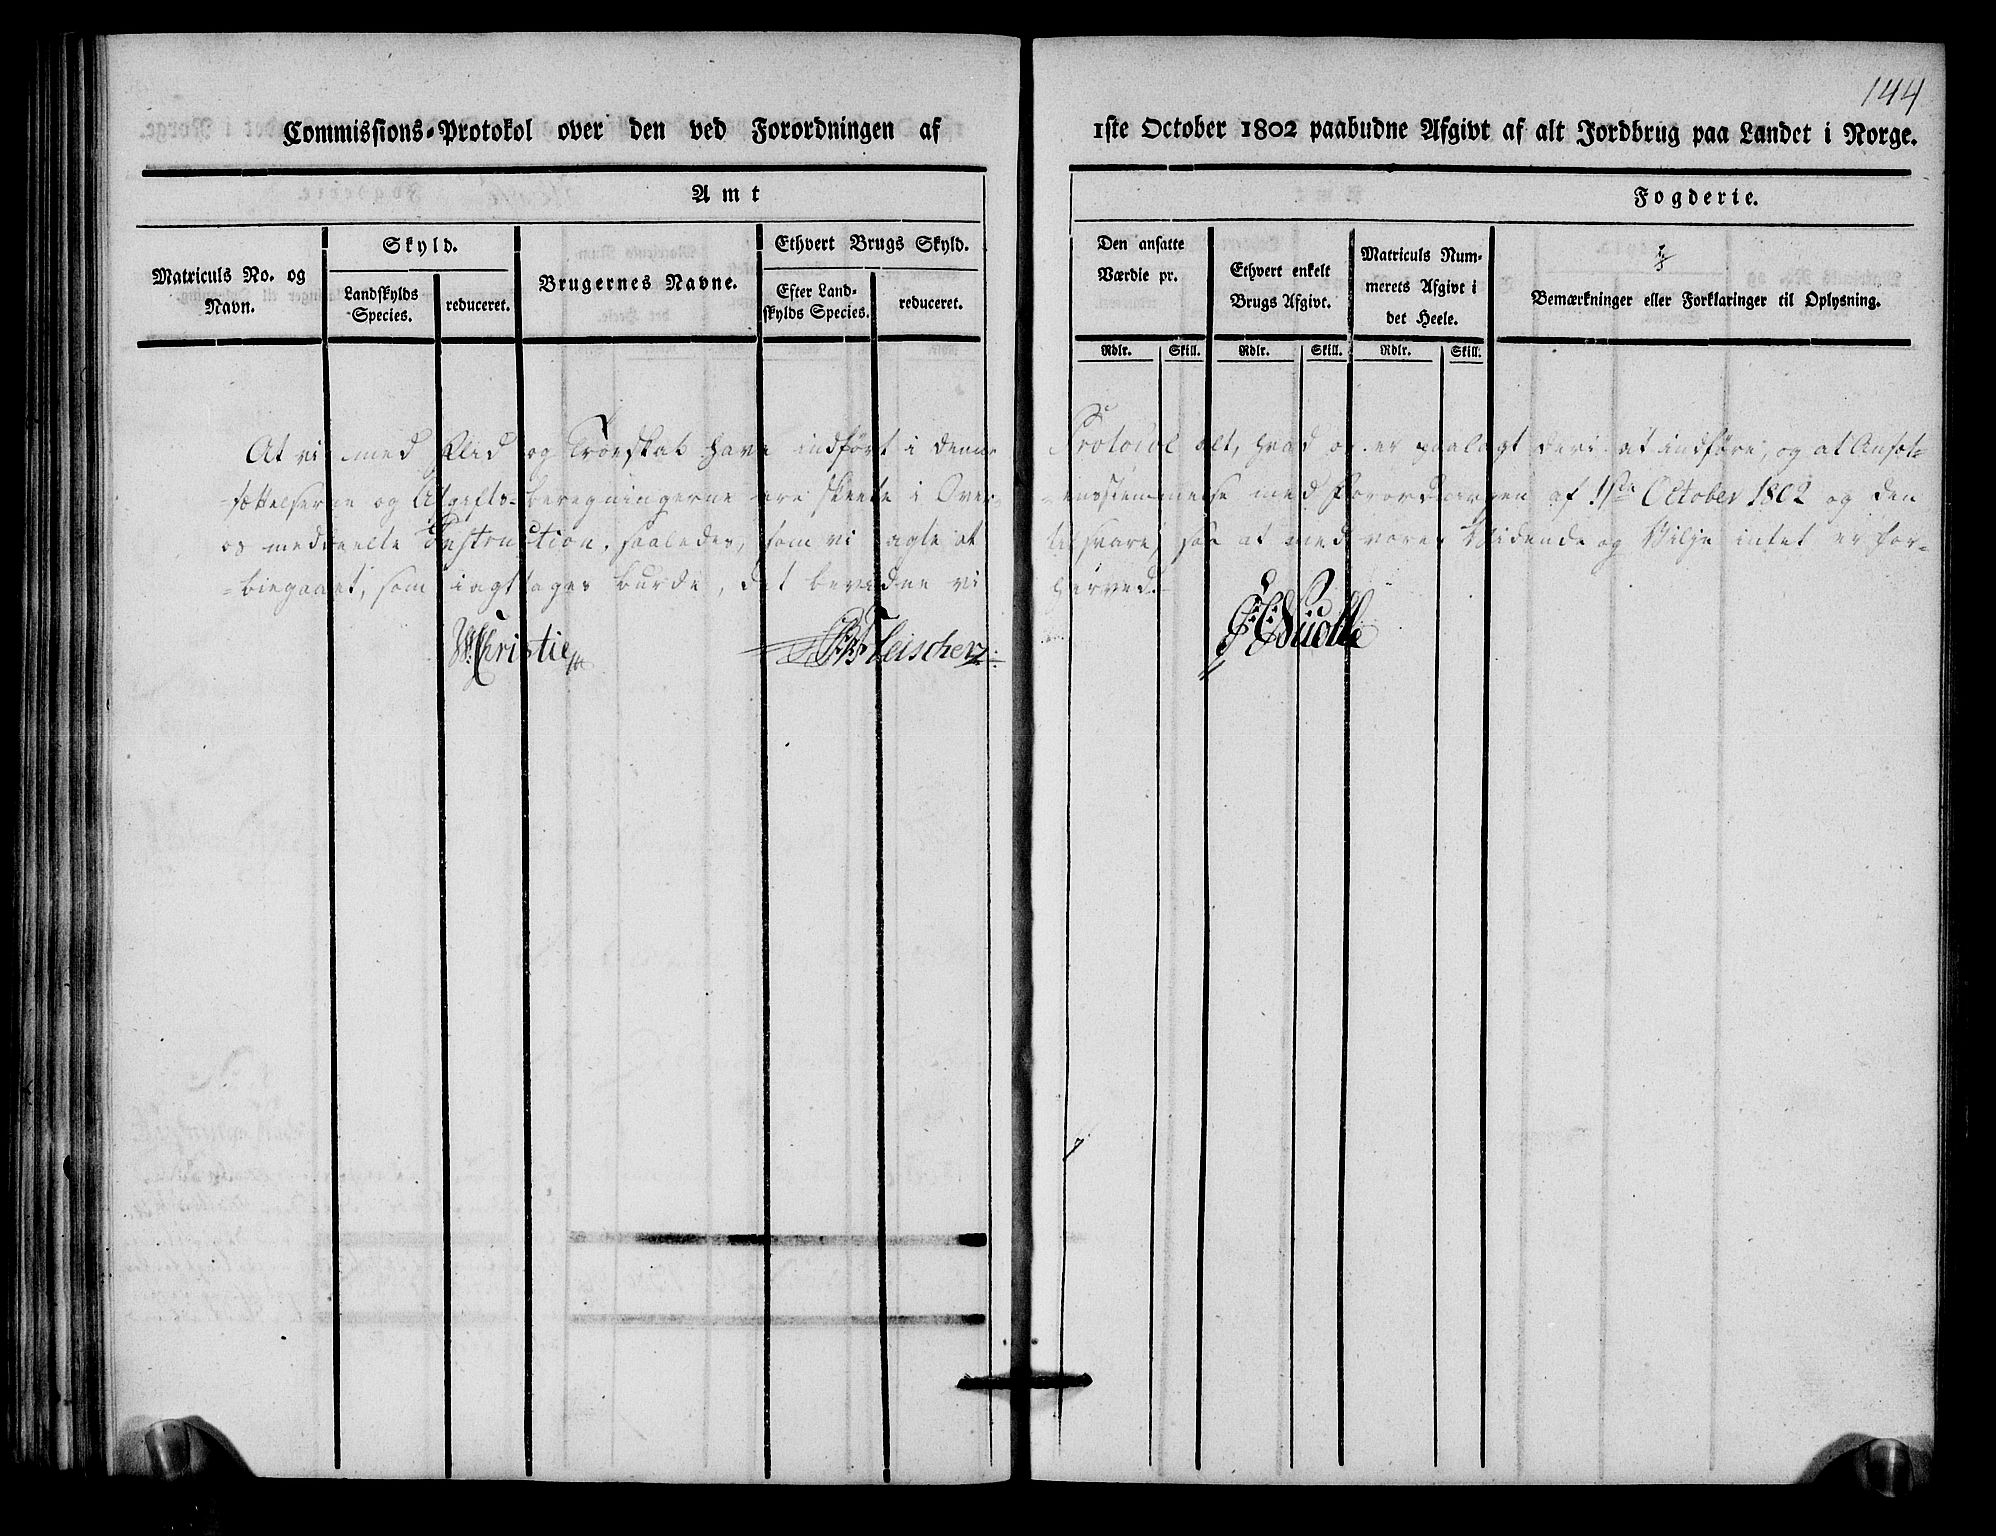 144
Commissions-Protokol over den ved Forordningen af 1ste October 1802 paabudne Afgivt af alt Jordbrug paa Landet i Norge.
Amt
Fogderie.
Matriculs No. og Navn.
Skyld.
Landskylds Species.
reduceret.
Brugernes Navne.
Ethvert Brugs Skyld.
Efter Landskylds Species.
reduceret.
Den ansatte Værdie pr.
Rdlr. Skill.
Ethvert enkelt Brugs Afgivt.
Rdlr. Skill.
Matriculs Nummerets Afgivt i det Heele.
Rdlr. Skill.
Bemærkninger eller Forklaringer til Oplysning.
At vi med Flid og Troeskab have indført i denne Protocol alt, hvad os er paalagt deri at indføre, og at Ansæt-
-sættelserne og Afgifts-beregningerne ere skeete i Over-eensstemmelse med Forordningen af 1ste October 1802 og den
os meddeelte Instruction, saaledes, som vi agte at tilsvare, saa at med vores Vidende og Vilje intet er for-
-biegaaet, som iagttages burde, det bevidne vi herved.
W. Christie
Fleischer